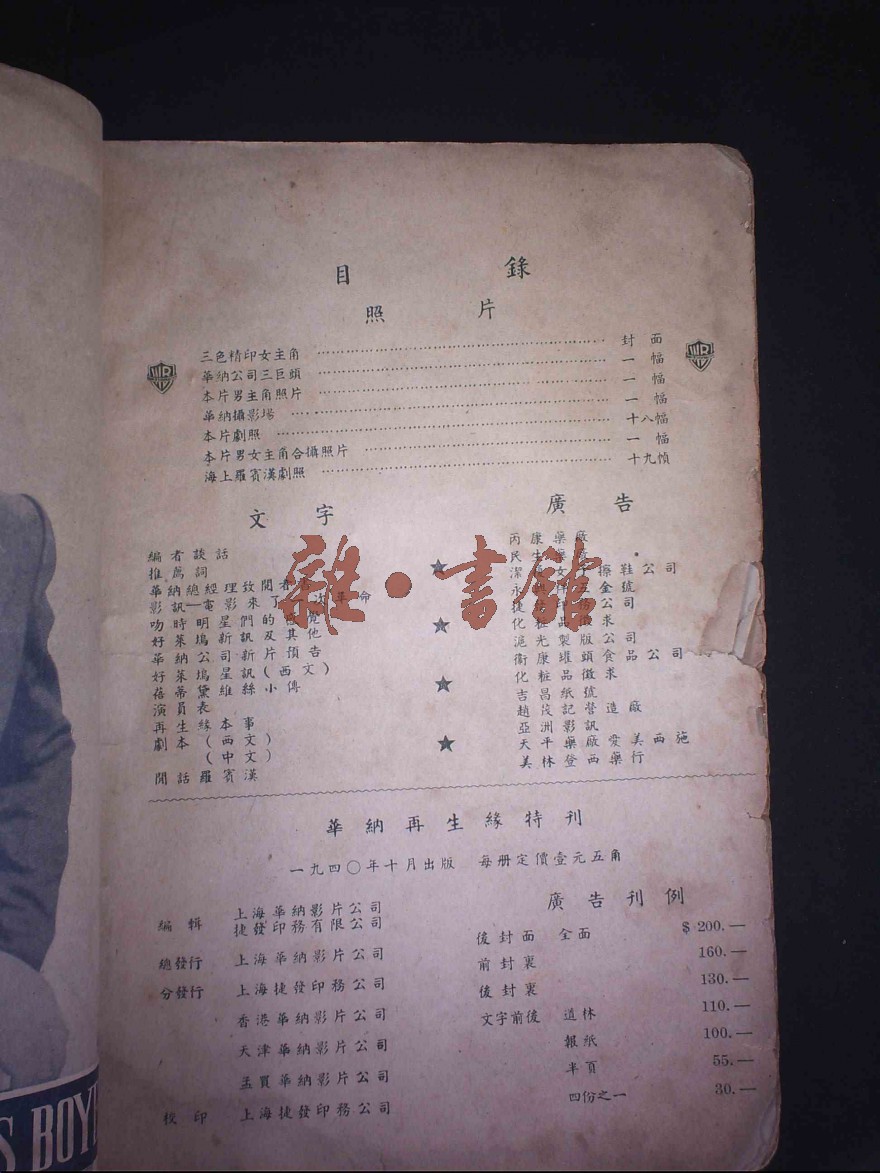 目 錄
照 片
三色精印女主角 封面
華納公司三巨頭 一幅
本片男主角照片 一幅
華納攝影場 一幅
本片劇照 十八幅
本片男女主角合攝照片 一幅
海上羅賓漢劇照 十九幀
文 字
編者談話
推薦詞
華納總經理致閱者
影訊—電影來了 次革命
吻時明星們的 覺
好萊塢新訊及其他
華納公司新片預告
好萊塢星訊(西文)
蓓蒂黛維絲小傳
演員表
再生緣本事
劇本(西文)
(中文)
閒話羅賓漢
廣 告
丙康藥廠
民生
潔 女 擦鞋公司
永 金號
捷 公司
化 品 求
滬光製版公司
衛康罐頭食品公司
化粧品徵求
吉昌紙號
趙茂記營造廠
亞洲影訊
天平藥廠愛美西施
美林登西藥行
雜·書館
華納再生緣特刊
一九四〇年十月出版 每册定價壹元五角
編輯 上海華納影片公司
捷發印務有限公司
總發行 上海華納影片公司
分發行 上海捷發印務公司
香港華納影片公司
天津華納影片公司
孟買華納影片公司
承印 上海捷發印務公司
廣告刊例
後封面 全面 $ 200.—
前封裏 160.—
後封裏 130.—
文字前後 道林 110.—
報紙 100.—
半頁 55.—
四份之一 30.—
S BOY